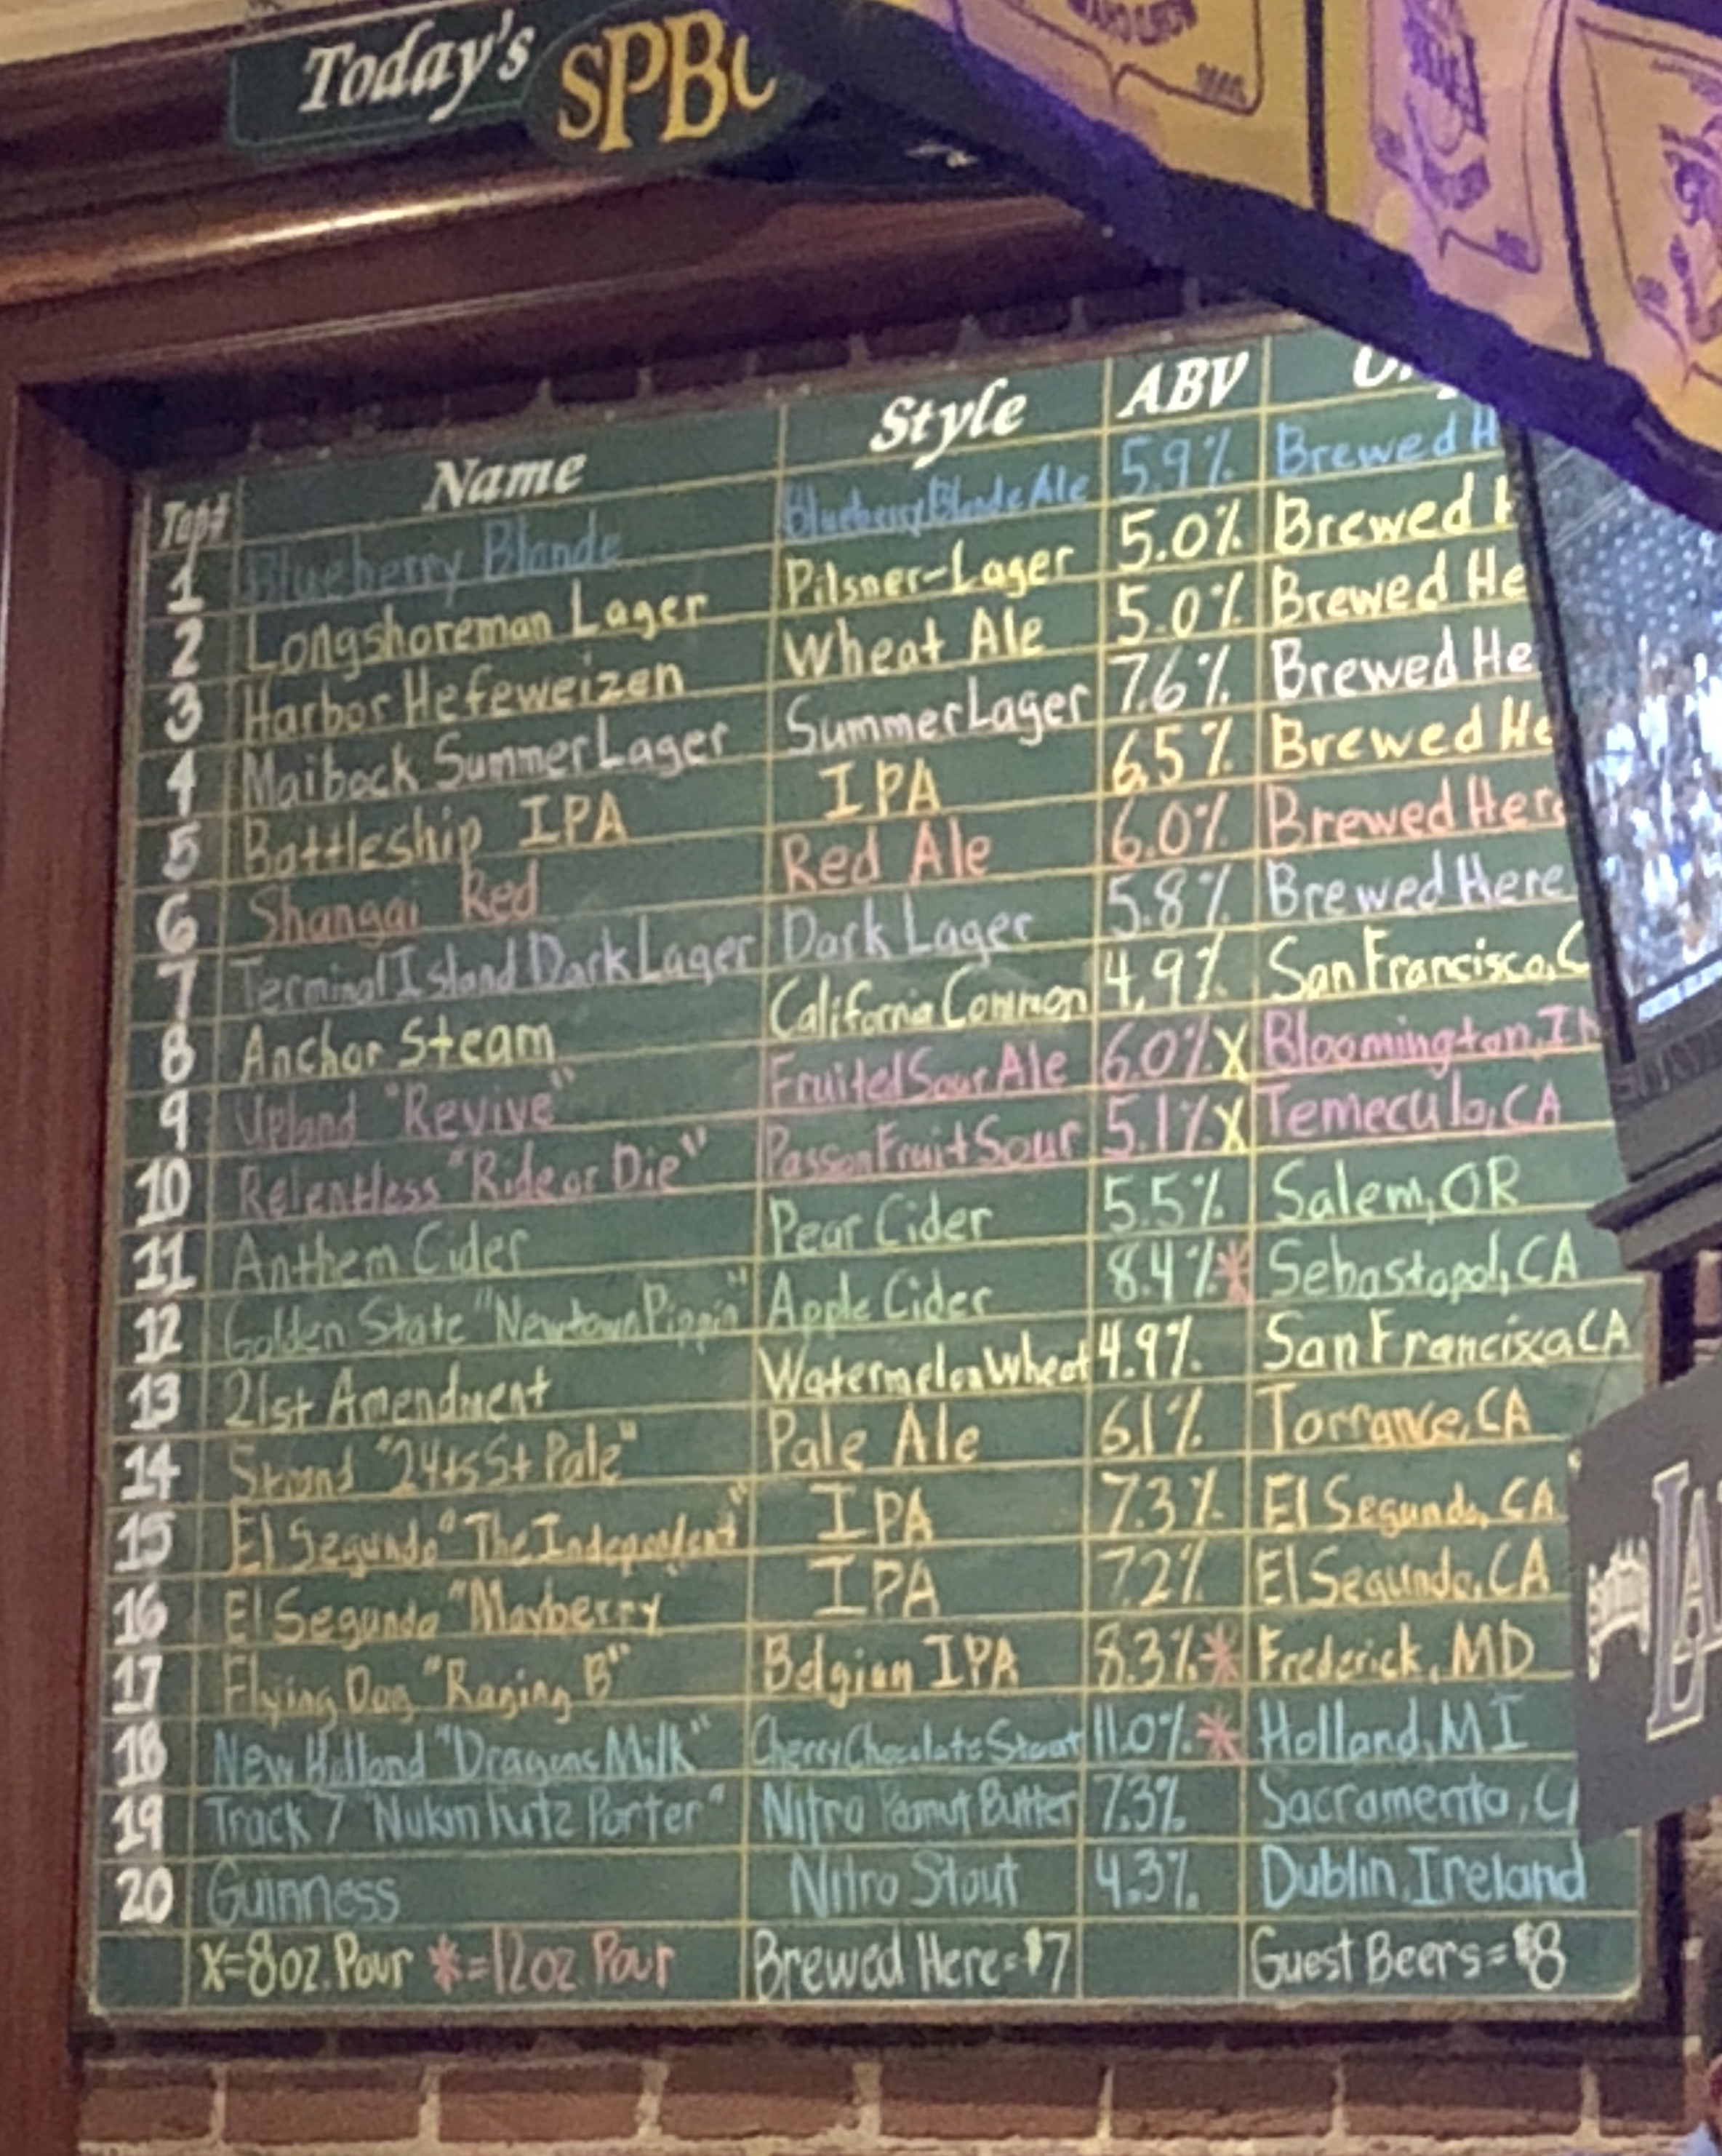 Today's SPB
Tap# Name Style ABV
1 Blueberry Blonde Blueberry Blonde Ale 5.9% Brewed H
2 Longshoreman Lager Pilsner-Lager 5.0% Brewed
3 Harbor Hefeweizen Wheat Ale 5.0% Brewed He
4 Maibock Summer Lager Summer Lager 7.6% Brewed He
5 Battleship IPA IPA 6.5% Brewed He
6 Shangai Red Red Ale 6.0% Brewed Here
7 Terminal Island Dark Lager Dark Lager 5.8% Brewed Here
8 Anchor Steam California Common 4.9% San Francisco, C
9 Upland "Revive" Fruited Sour Ale 6.0% X Bloomington, IN
10 Relentless "Ride or Die" Passon Fruit Sour 5.1% X Temecula, CA
11 Anthem Cider Pear Cider 5.5% Salem, OR
12 Golden State "Newtown Pippin" Apple Cider 8.4% * Sebastopol, CA
13 21st Amendment Watermelon Wheat 4.9% San Francisco CA
14 Strand "24ts St Pale" Pale Ale 6.1% Torrance, CA
15 El Segundo "The Independent" IPA 7.3% El Segundo, CA
16 El Segundo "Mayberry" IPA 7.2% El Segundo, CA
17 Flying Dog "Raging B" Belgian IPA 8.3% * Frederick, MD
18 New Holland "Dragons Milk" Cherry Chocolate Stout 11.0% * Holland, MI
19 Track 7 "Nukin Futz Porter" Nitro Peanut Butter 7.3% Sacramento, C
20 Guinness Nitro Stout 4.3% Dublin, Ireland
X=8oz. Pour *=12oz. Pour Brewed Here=$7 Guest Beers=$8
LA